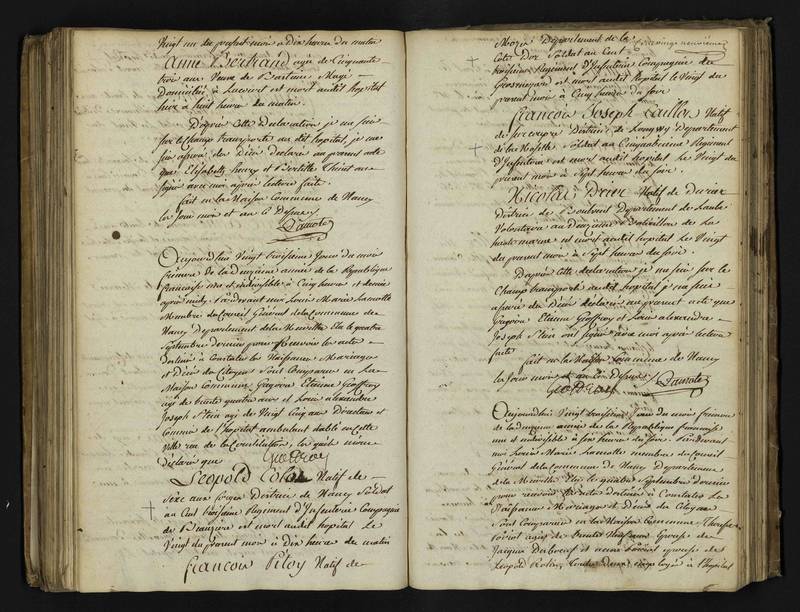 Vingt un du présent mois à dix heures du matin
Anne Bertrand agée de Cinquante
trois ans Veuve de
Domiciliée à est mort audit hôpital
hier à huit heures du matin.
D'après cette declaration je me suis
sur le champ transporté au dit hôpital, je me
suis assuré du Décè déclaré au présent acte
que Elisabeth henry et
signé avec moi après lecture faite
fait en la Maison Commune de Nancy
les Jour mois et an Cy Dessus
Lamotte
Aujourd'hui Vingt troisieme Jour du mois
frimaire de la Deuxieme année de la République
francaise une et indivisible à Cinq heures et demie
après midy. Pardevant moi Louis Marie Lamotte
Membre du Conseil Général de la Commune de
Nancy Departement de la Meurthe Elu le quatre
Septembre dernier pour Recevoir les actes
Destiné à Constater les Naissances Mariages
et Décès des Citoyens Sont Comparus en La
Maison Commune Gregoire Etienne Geoffroy
agé de trente quatre ans et Louis alexandre
Joseph Stein agé de Vingt Cinq ans Directeur et
Commis de l'hopital ambulant établi en cette
Ville rue de la Constitution, lesquels m'ont
declaré que
Geoffroy
Léopold Colo Natif de
District de Nancy Soldat
au Cent troisieme Régiment d'Infanterie Compagnie
de est mort audit hopital Le
Vingt du présent mois à dix heures du matin
François Pitoy Natif de
Departement de la
quatrevingt neuvième
Côte D'or Soldat au Cent
troisieme Régiment d'Infanterie Compagnie de
est mort audit hopital le Vingt du
présent mois à Cinq heures du soir
François Joseph Caillon Natif
de District de Longwy Departement
de la Moselle Soldat au Cinquantieme Régiment
d'Infanterie est mort audit hopital le Vingt du
présent mois à Sept heures du soir.
Nicolas Drier Natif de
District de Departement de l'aube
Volontaire au Dixieme Bataillon de La
haute marne est mort audit hôpital le Vingt
du présent mois à Sept heures du soir.
D'après Cette declaration je me suis sur le
Champ transporté audit hôpital je me suis
assuré du Décè déclaré au présent acte que
Grégoire Etienne Geoffroy et Louis alexandre
Joseph Stein ont signé avec moi après lecture
faite
fait en la Maison Commune de Nancy
les Jour mois et an Cy Dessus
Geoffroy Lamotte
Aujourd'hui Vingt troisieme Jour du mois frimaire
de la deuxieme année de la République francaise
une et indivisible à six heures du soir. Pardevant
moi Louis Marie Lamotte membre du Conseil
Général de la Commune de Nancy departement
de la Meurthe Elu le quatre Septembre dernier
pour recevoir les actes destinés à Constater Les
Naissances Mariages et Décès des Citoyens
Sont Comparus en la Maison Commune
agée de trente ans Epouse de
Jacques Duboeuf et epouse de
Léopold employé à l'hopital